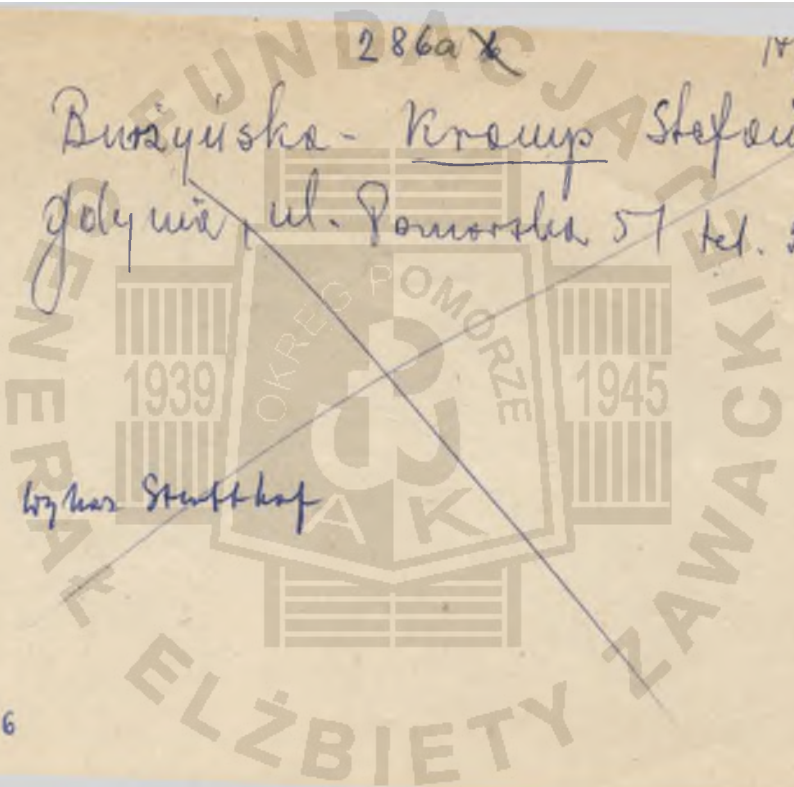 286a
Burzyńska - Kramp Stefan
Gdynia, ul. Pomorska 51 tel.
Wykaz Stutthof
6
FUNDACJA GENERAŁ ELŻBIETY ZAWACKIEJ
OKRĘG POMORZE
1939
1945
AK